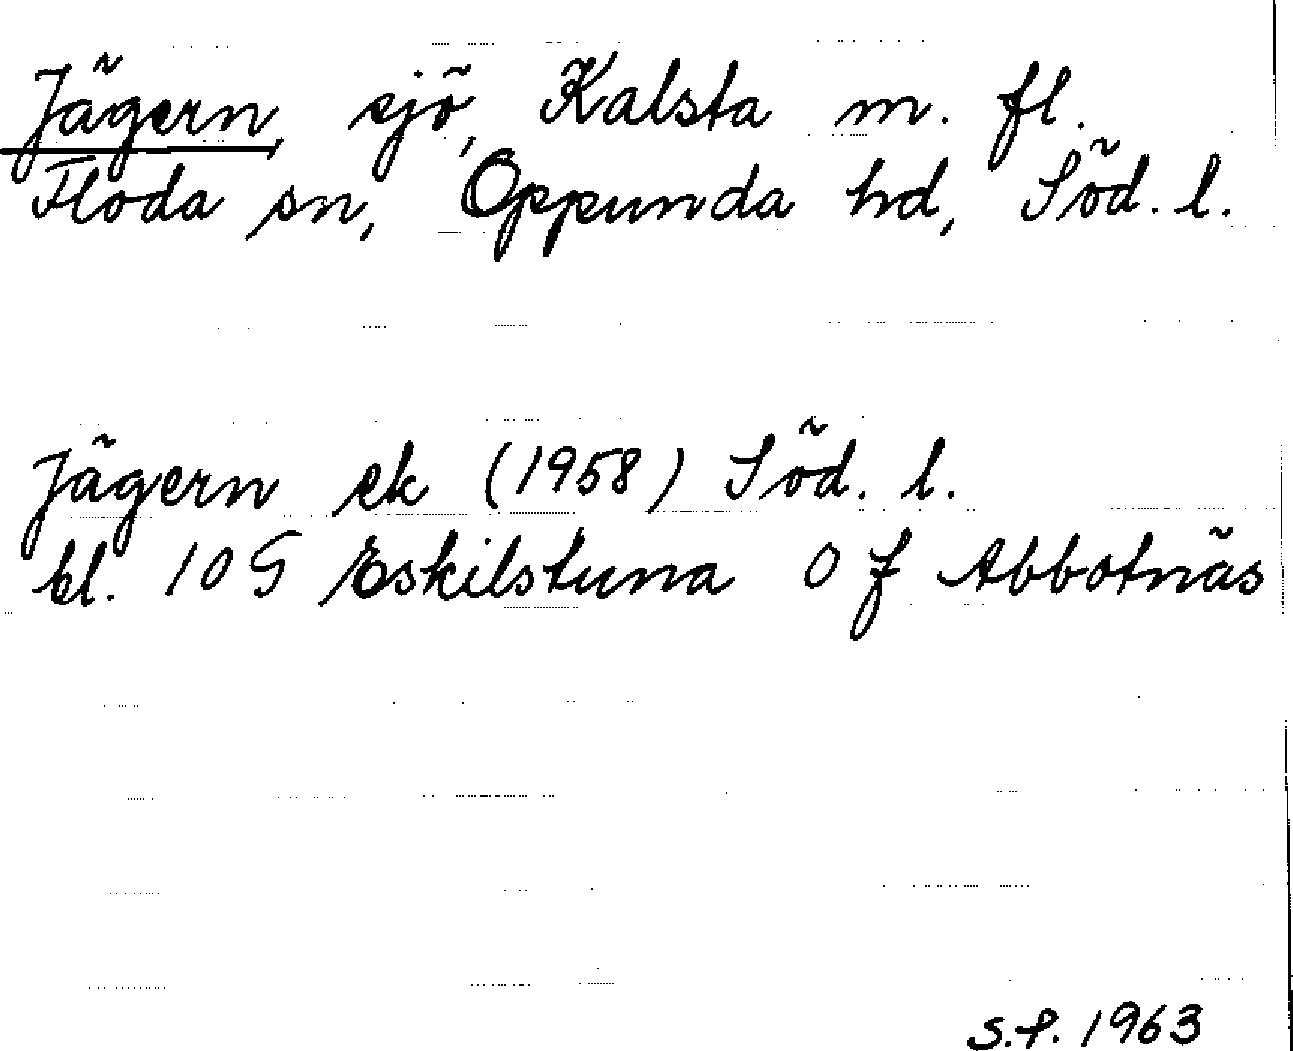 Jägern, sjö, Kalsta m. fl.
Floda sn, Oppunda hd, Söd. l.
Jägern ek (1958) Söd. l.
bl. 10 G Eskilstuna 0 f Abbotnäs
S.F. 1963